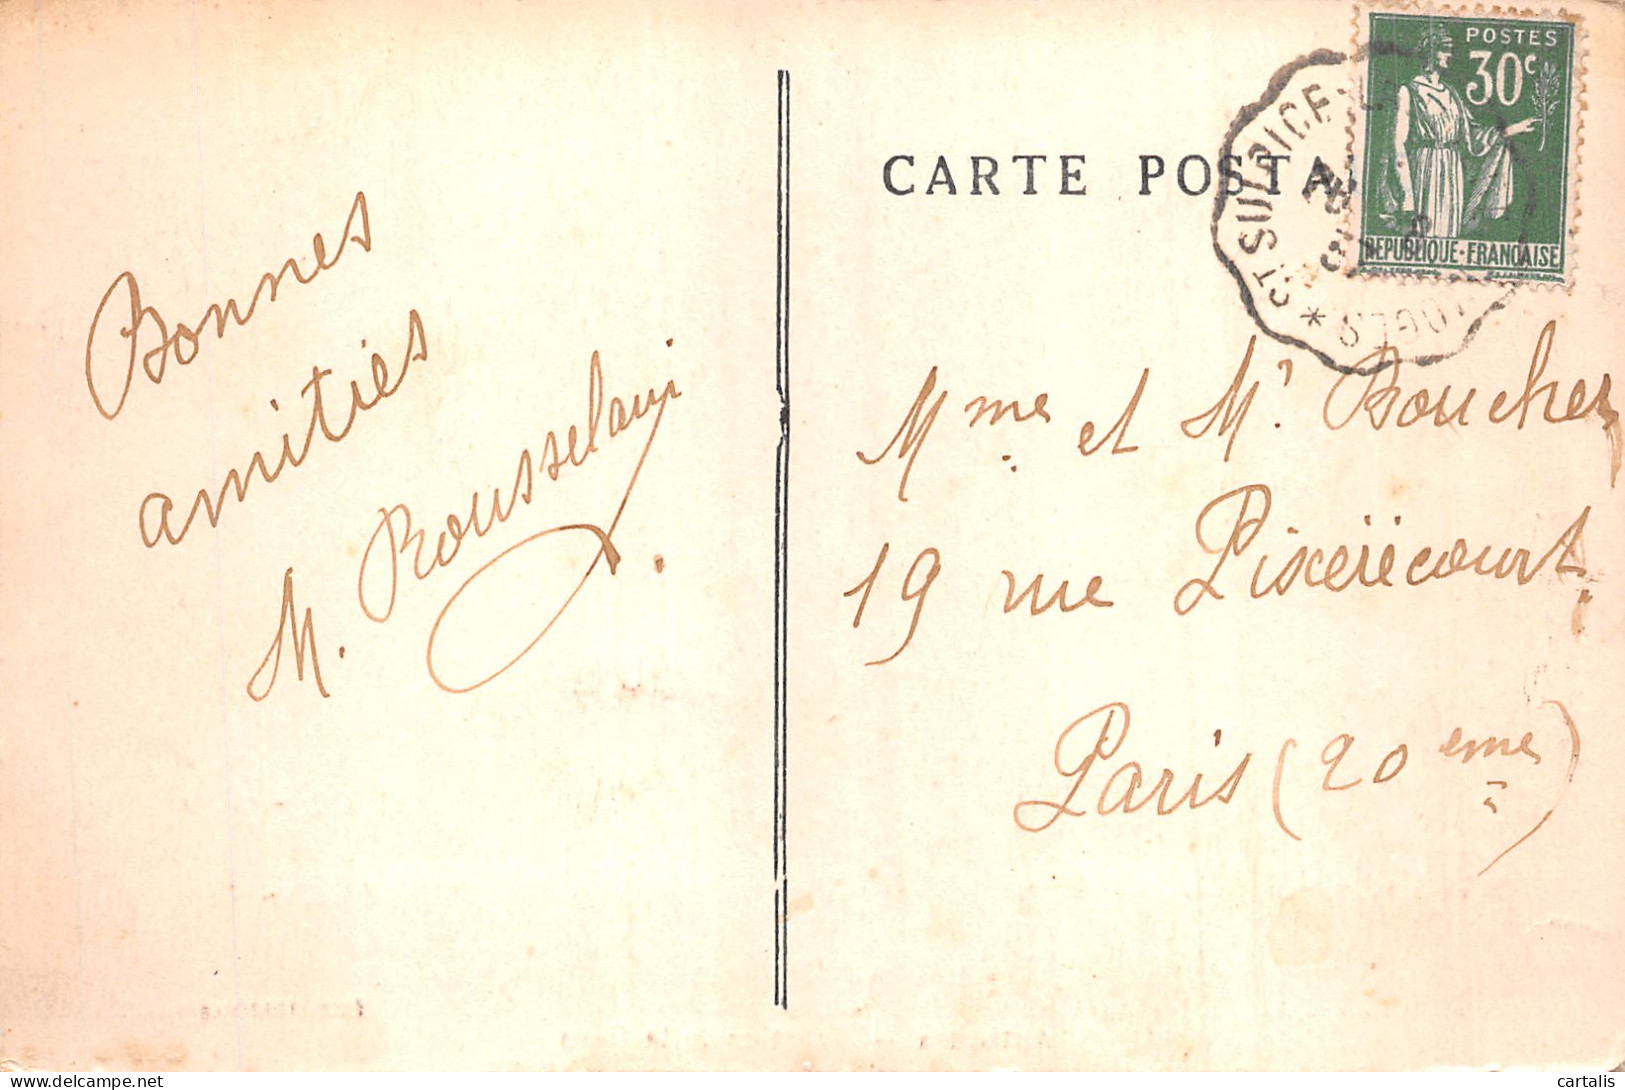 Bonnes
amitiés
M. Rousselaur
CARTE POSTA
POSTES
30c
REPUBLIQUE·FRANÇAISE
ST SULPICE
Mme et Mr Boucher
19 rue Pixérécourt
Paris (20eme)
delcampe.net
cartalis